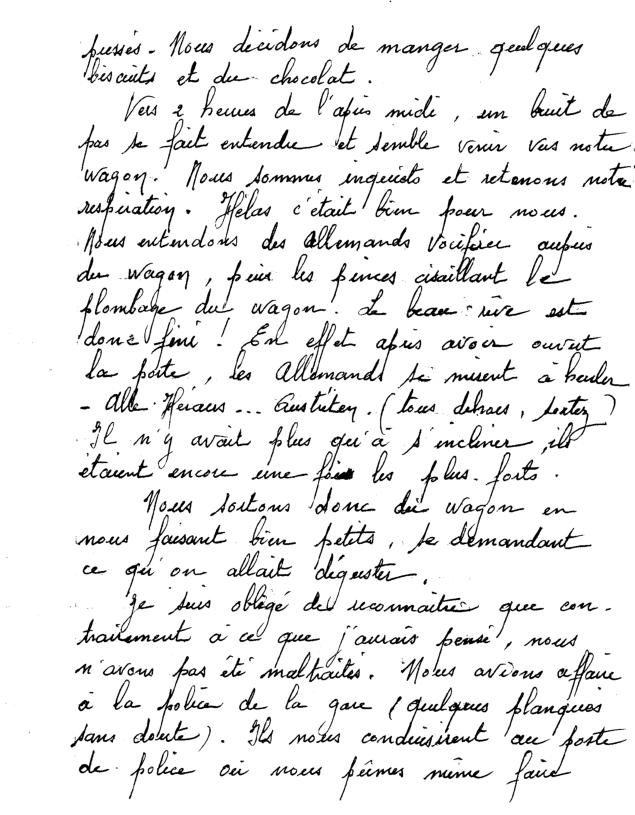 pressés - Nous décidons de manger quelques
biscuits et du chocolat.
Vers 2 heures de l'après midi, un bruit de
pas se fait entendre et semble venir vers notre
wagon. Nous sommes inquiets et retenons notre
respiration. Hélas c'était bien pour nous.
Nous entendons des Allemands vociférer auprès
du wagon, puis les pinces cisaillant le
plombage du wagon. Le beau rêve est
donc fini ! En effet après avoir ouvert
la porte, les Allemands se mirent à hurler
- Alle Héraus ... Austréten. (tous dehors, sortez)
Il n'y avait plus qu'à s'incliner, ils
étaient encore une fois les plus forts.
Nous sortons donc du wagon en
nous faisant bien petits, se demandant
ce qu'on allait déguster.
Je suis obligé de reconnaitre que con-
trairement à ce que j'aurais pensé, nous
n'avons pas été maltraités. Nous avions affaire
à la police de la gare (quelques planqués
sans doute). Ils nous conduisirent au poste
de police où nous pûmes même faire